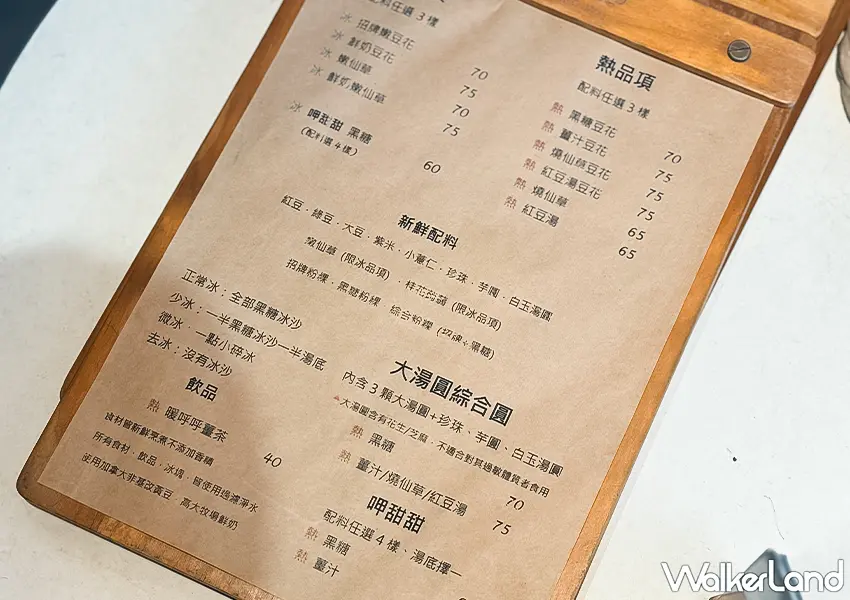 配料任選3樣
冰 招牌嫩豆花 70
冰 鮮奶豆花 75
冰 嫩仙草 70
冰 鮮奶嫩仙草 75
冰 呷甜甜 黑糖 60
(配料選4樣)
熱品項
配料任選3樣
熱 黑糖豆花 70
熱 薑汁豆花 75
熱 燒仙草豆花 75
熱 紅豆湯豆花 75
熱 燒仙草 65
熱 紅豆湯 65
新鮮配料
紅豆．綠豆．大豆．紫米．小薏仁．珍珠．芋圓．白玉湯圓
嫩仙草 (限冰品項)．桂花蒟蒻 (限冰品項)
招牌粉粿．黑糖粉粿．綜合粉粿 (招牌+黑糖)
正常冰：全部黑糖冰沙
少冰：一半黑糖冰沙一半湯底
微冰：一點小碎冰
去冰：沒有冰沙
飲品
熱 暖呼呼薑茶 40
食材皆新鮮烹煮不添加香精
所有食材．飲品．冰塊．皆使用過濾淨水
使用加拿大非基改黃豆 高大牧場鮮奶
大湯圓綜合圓
內含3顆大湯圓+珍珠、芋圓、白玉湯圓
大湯圓含有花生/芝麻．不適合對其過敏體質者食用
熱 黑糖 70
熱 薑汁/燒仙草/紅豆湯 75
呷甜甜
配料任選4樣、湯底擇一
熱 黑糖
熱 薑汁
WalkerLand